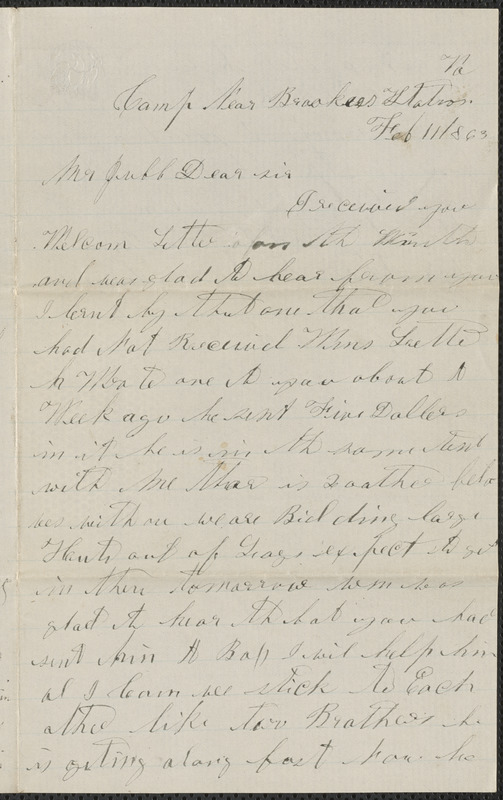 Va
Camp Near Brookes Station
Feb 11 1863
Mr Jubb Dear sir
I received you
Welcom Letter on th
and was glad to hear from you
I lernt by that one that you
had Not Received Wms Lette
h Wrote one to you about A
Week ago he sent Five Dollers
in it he is in th same tent
with Me thare is 2 othe felo
ws with ou we are Bilding large
Hents out of Logs expect to go
in them tomorrow Wm was
glad to hear that you had
sent him A Box I wil help him
al I Can we stick to Each
othe like two Brothers he
is geting along fast Now he